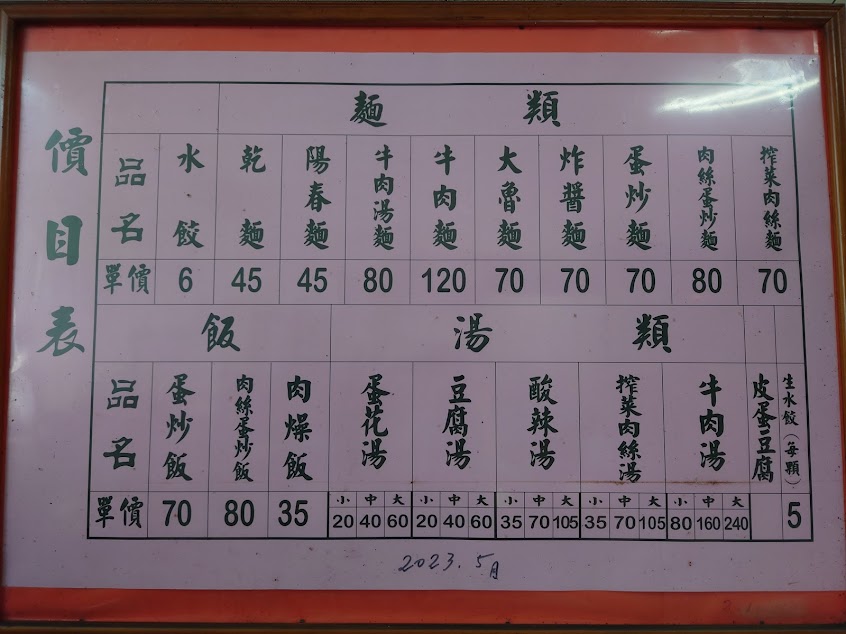 價目表
麵類
品名 水餃 乾麵 陽春麵 牛肉湯麵 牛肉麵 大魯麵 炸醬麵 蛋炒麵 肉絲蛋炒麵 榨菜肉絲麵
單價 6 45 45 80 120 70 70 70 80 70
飯 湯類
品名 蛋炒飯 肉絲蛋炒飯 肉燥飯 蛋花湯 豆腐湯 酸辣湯 榨菜肉絲湯 牛肉湯 皮蛋豆腐 生水餃（每顆）
小 中 大 小 中 大 小 中 大 小 中 大 小 中 大
單價 70 80 35 20 40 60 20 40 60 35 70 105 35 70 105 80 160 240 5
2023.5月